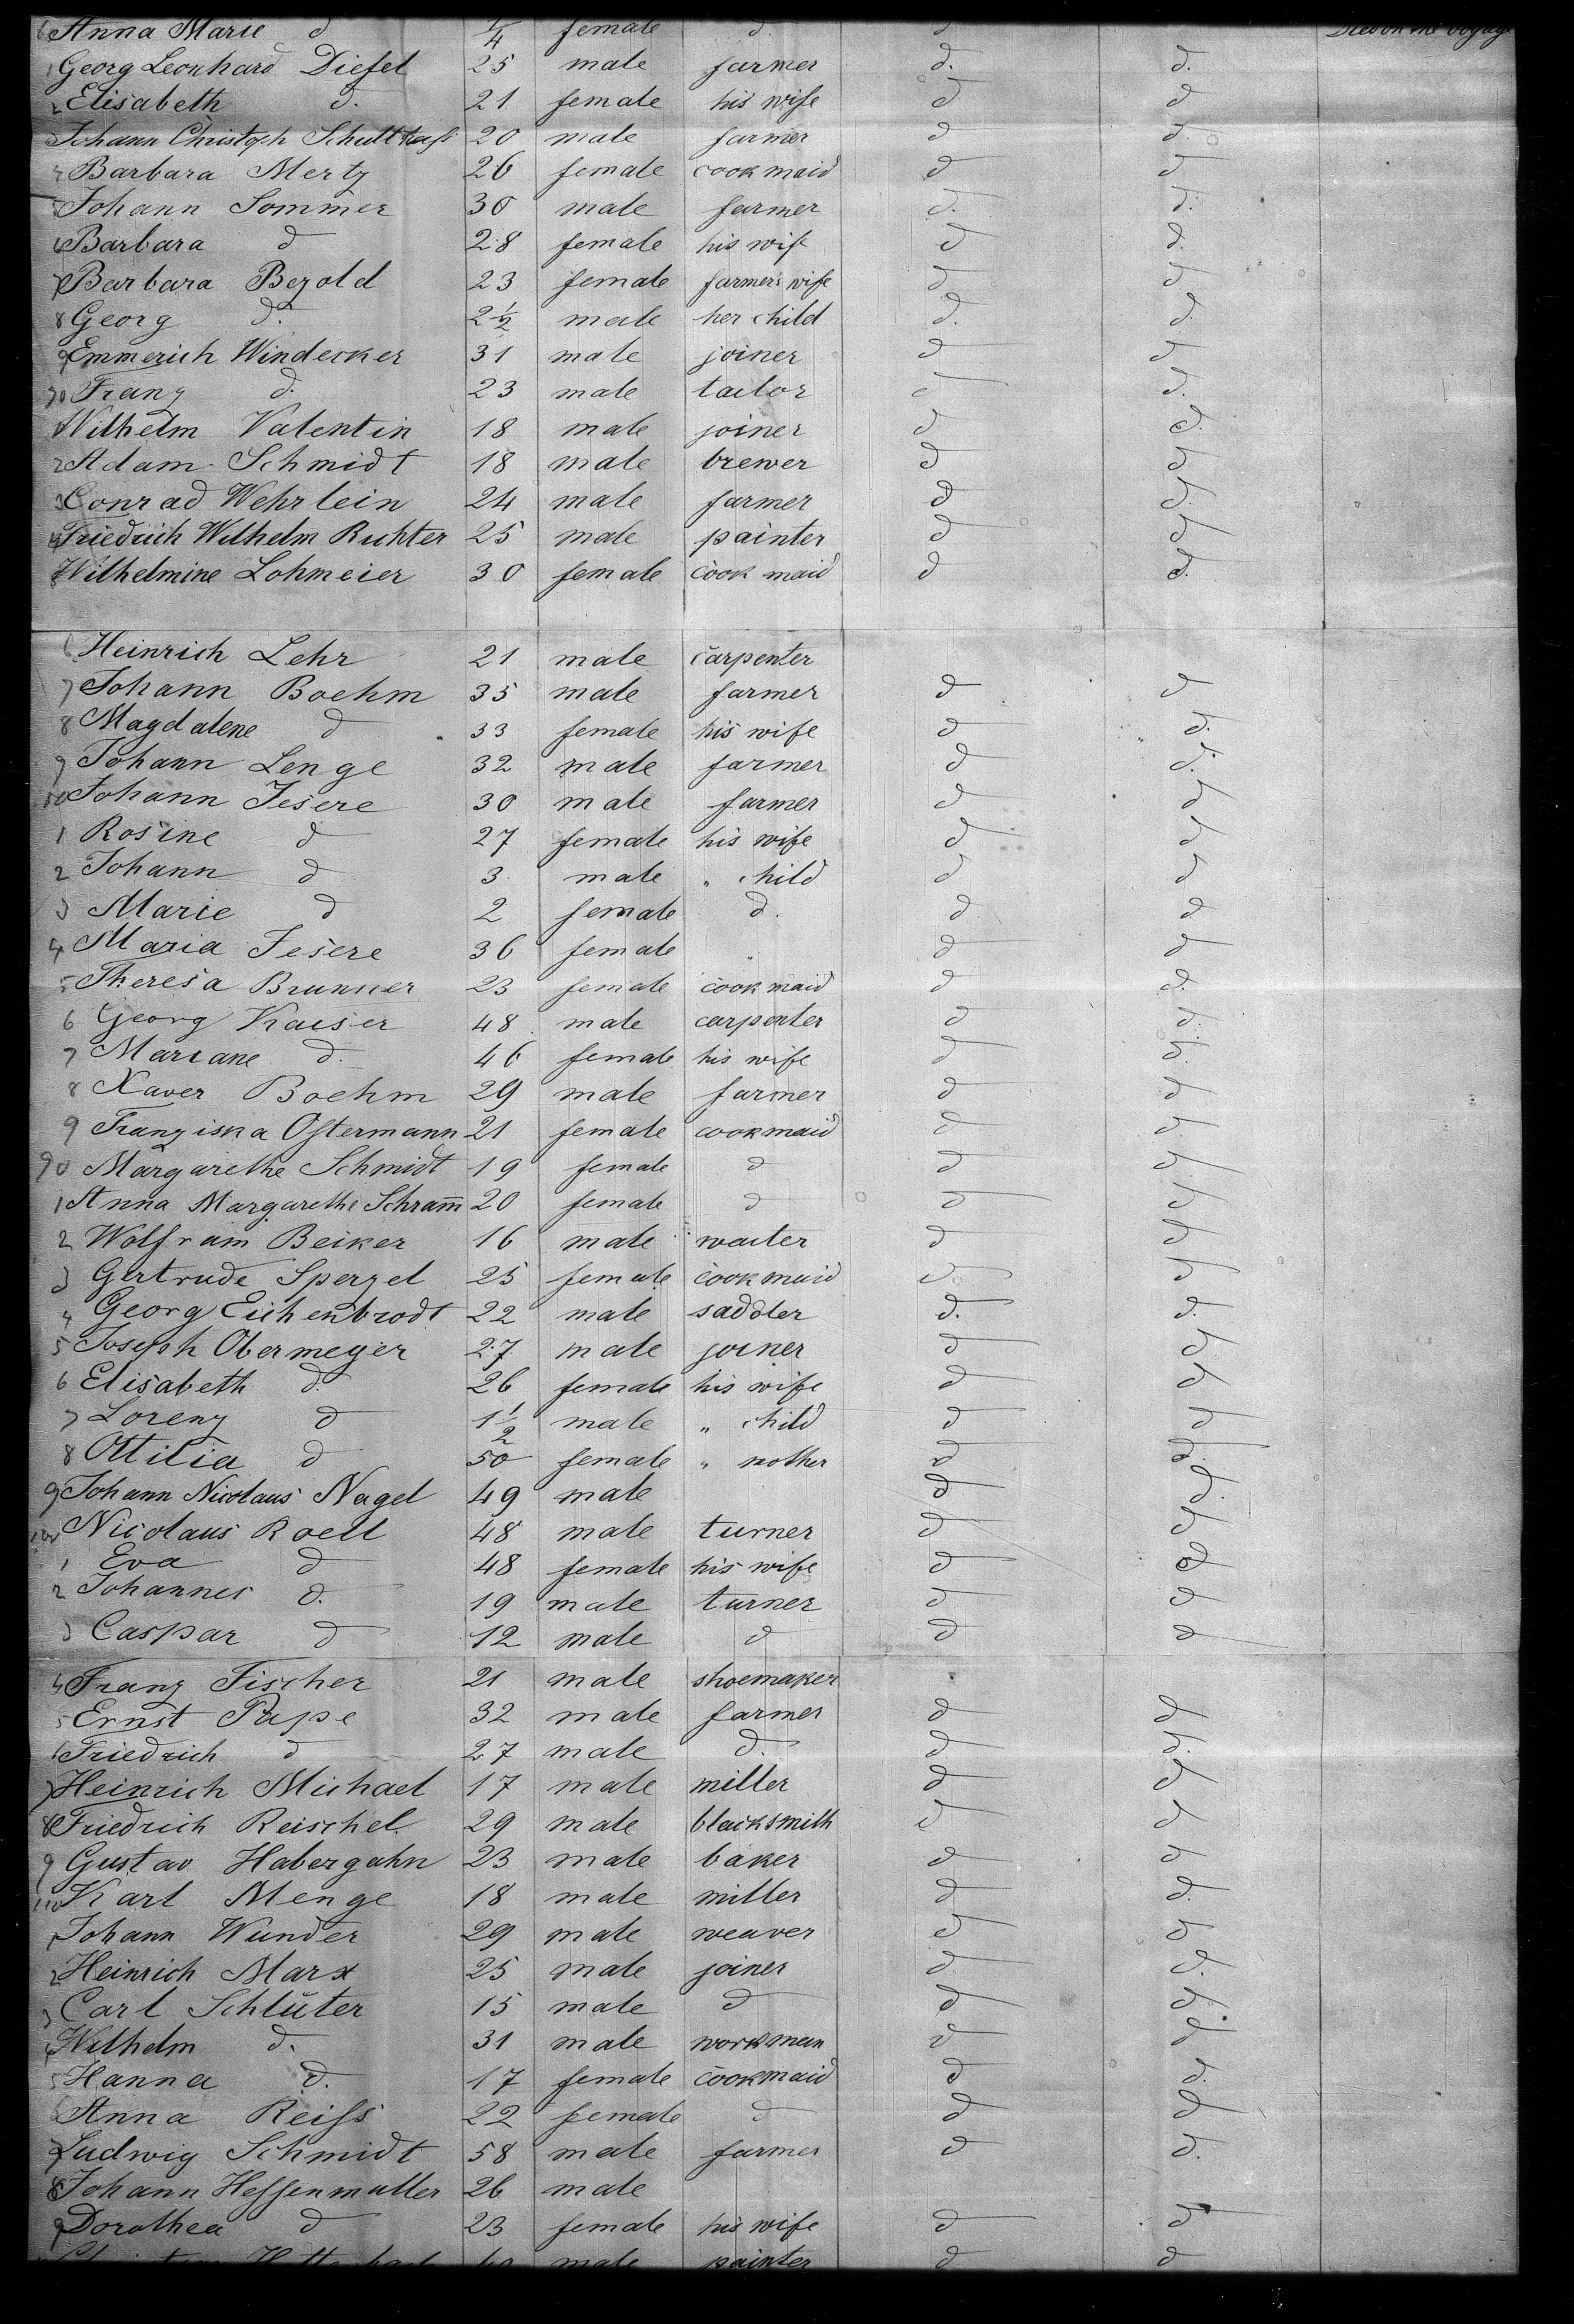 6 Anna Marie d 1/4 female d. d Died on the voyage
Georg Leonhard Diesel 25 male farmer d. d.
2 Elisabeth d. 21 female his wife d d
Johann Christoph 20 male farmer d d.
4 Barbara Mertz 26 female cook maid d d
5 Johann Sommer 30 male farmer d. d.
6 Barbara d 28 female his wife d d.
7 Barbara Bezold 23 female farmer's wife d d
8 Georg d. 2 1/2 male her child d. d.
9 Emmerich Windecker 31 male joiner d d
70 Franz d. 23 male tailor d d.
1 Wilhelm Valentin 18 male joiner d d.
2 Adam Schmidt 18 male brewer d d
3 Conrad Wehrlein 24 male farmer d d
4 Friedrich Wilhelm Richter 25 male painter d d
Wilhelmine Lohmeier 30 female cook maid d d.
6 Heinrich Lehr 21 male carpenter
7 Johann Boehm 35 male farmer d d
8 Magdalene d 33 female his wife d d.
9 Johann Lenge 32 male farmer d d.
80 Johann Jesere 30 male farmer d d
1 Rosine d 27 female his wife d d
2 Johann d 3 male " child d d
3 Marie d 2 female d. d d
4 Maria Jesere 36 female d d
5 Theresa Brunner 23 female cook maid d d.
6 Georg Kaiser 48 male carpenter d d.
7 Mariane d. 46 female his wife d d.
8 Xaver Boehm 29 male farmer d d
9 Franziska Ostermann 21 female cookmaid d d
90 Margarethe Schmidt 19 female d d d
1 Anna Margarethe Schram̅ 20 female d d d
2 Wolfram Beiker 16 male waiter d d
3 Gertrude Sperzel 25 female cookmaid d d
4 Georg Eichenbrodt 22 male saddler d. d.
5 Joseph Obermeyer 27 male joiner d d
6 Elisabeth d. 26 female his wife d d
7 Lorenz d 1 1/2 male " child d d
8 Ottilia d 50 female " mother d d
9 Johann Nicolaus Nagel 49 male d d.
100 Nicolaus Roell 48 male turner d d
1 Eva d 48 female his wife d d
2 Johannes d. 19 male turner d d
3 Caspar d 12 male d d d
4 Franz Fischer 21 male shoemaker
5 Ernst Pape 32 male farmer d d
6 Friedrich d 27 male d. d d.
7 Heinrich Michael 17 male miller d d
8 Friedrich Reischel 29 male blacksmith d d
9 Gustav Habergahn 23 male baker d d
110 Karl Menge 18 male miller d d.
1 Johann Wunder 29 male weaver d d
2 Heinrich Marx 25 male joiner d. d.
3 Carl Schlüter 15 male d d d
4 Wilhelm d. 31 male workman d d
5 Hanna d. 17 female cookmaid d d.
6 Anna Reiss 22 female d d d
7 Ludwig Schmidt 58 male farmer d d.
8 Johann Hessenmuller 26 male
9 Dorothea d 23 female his wife d d
male painter d d